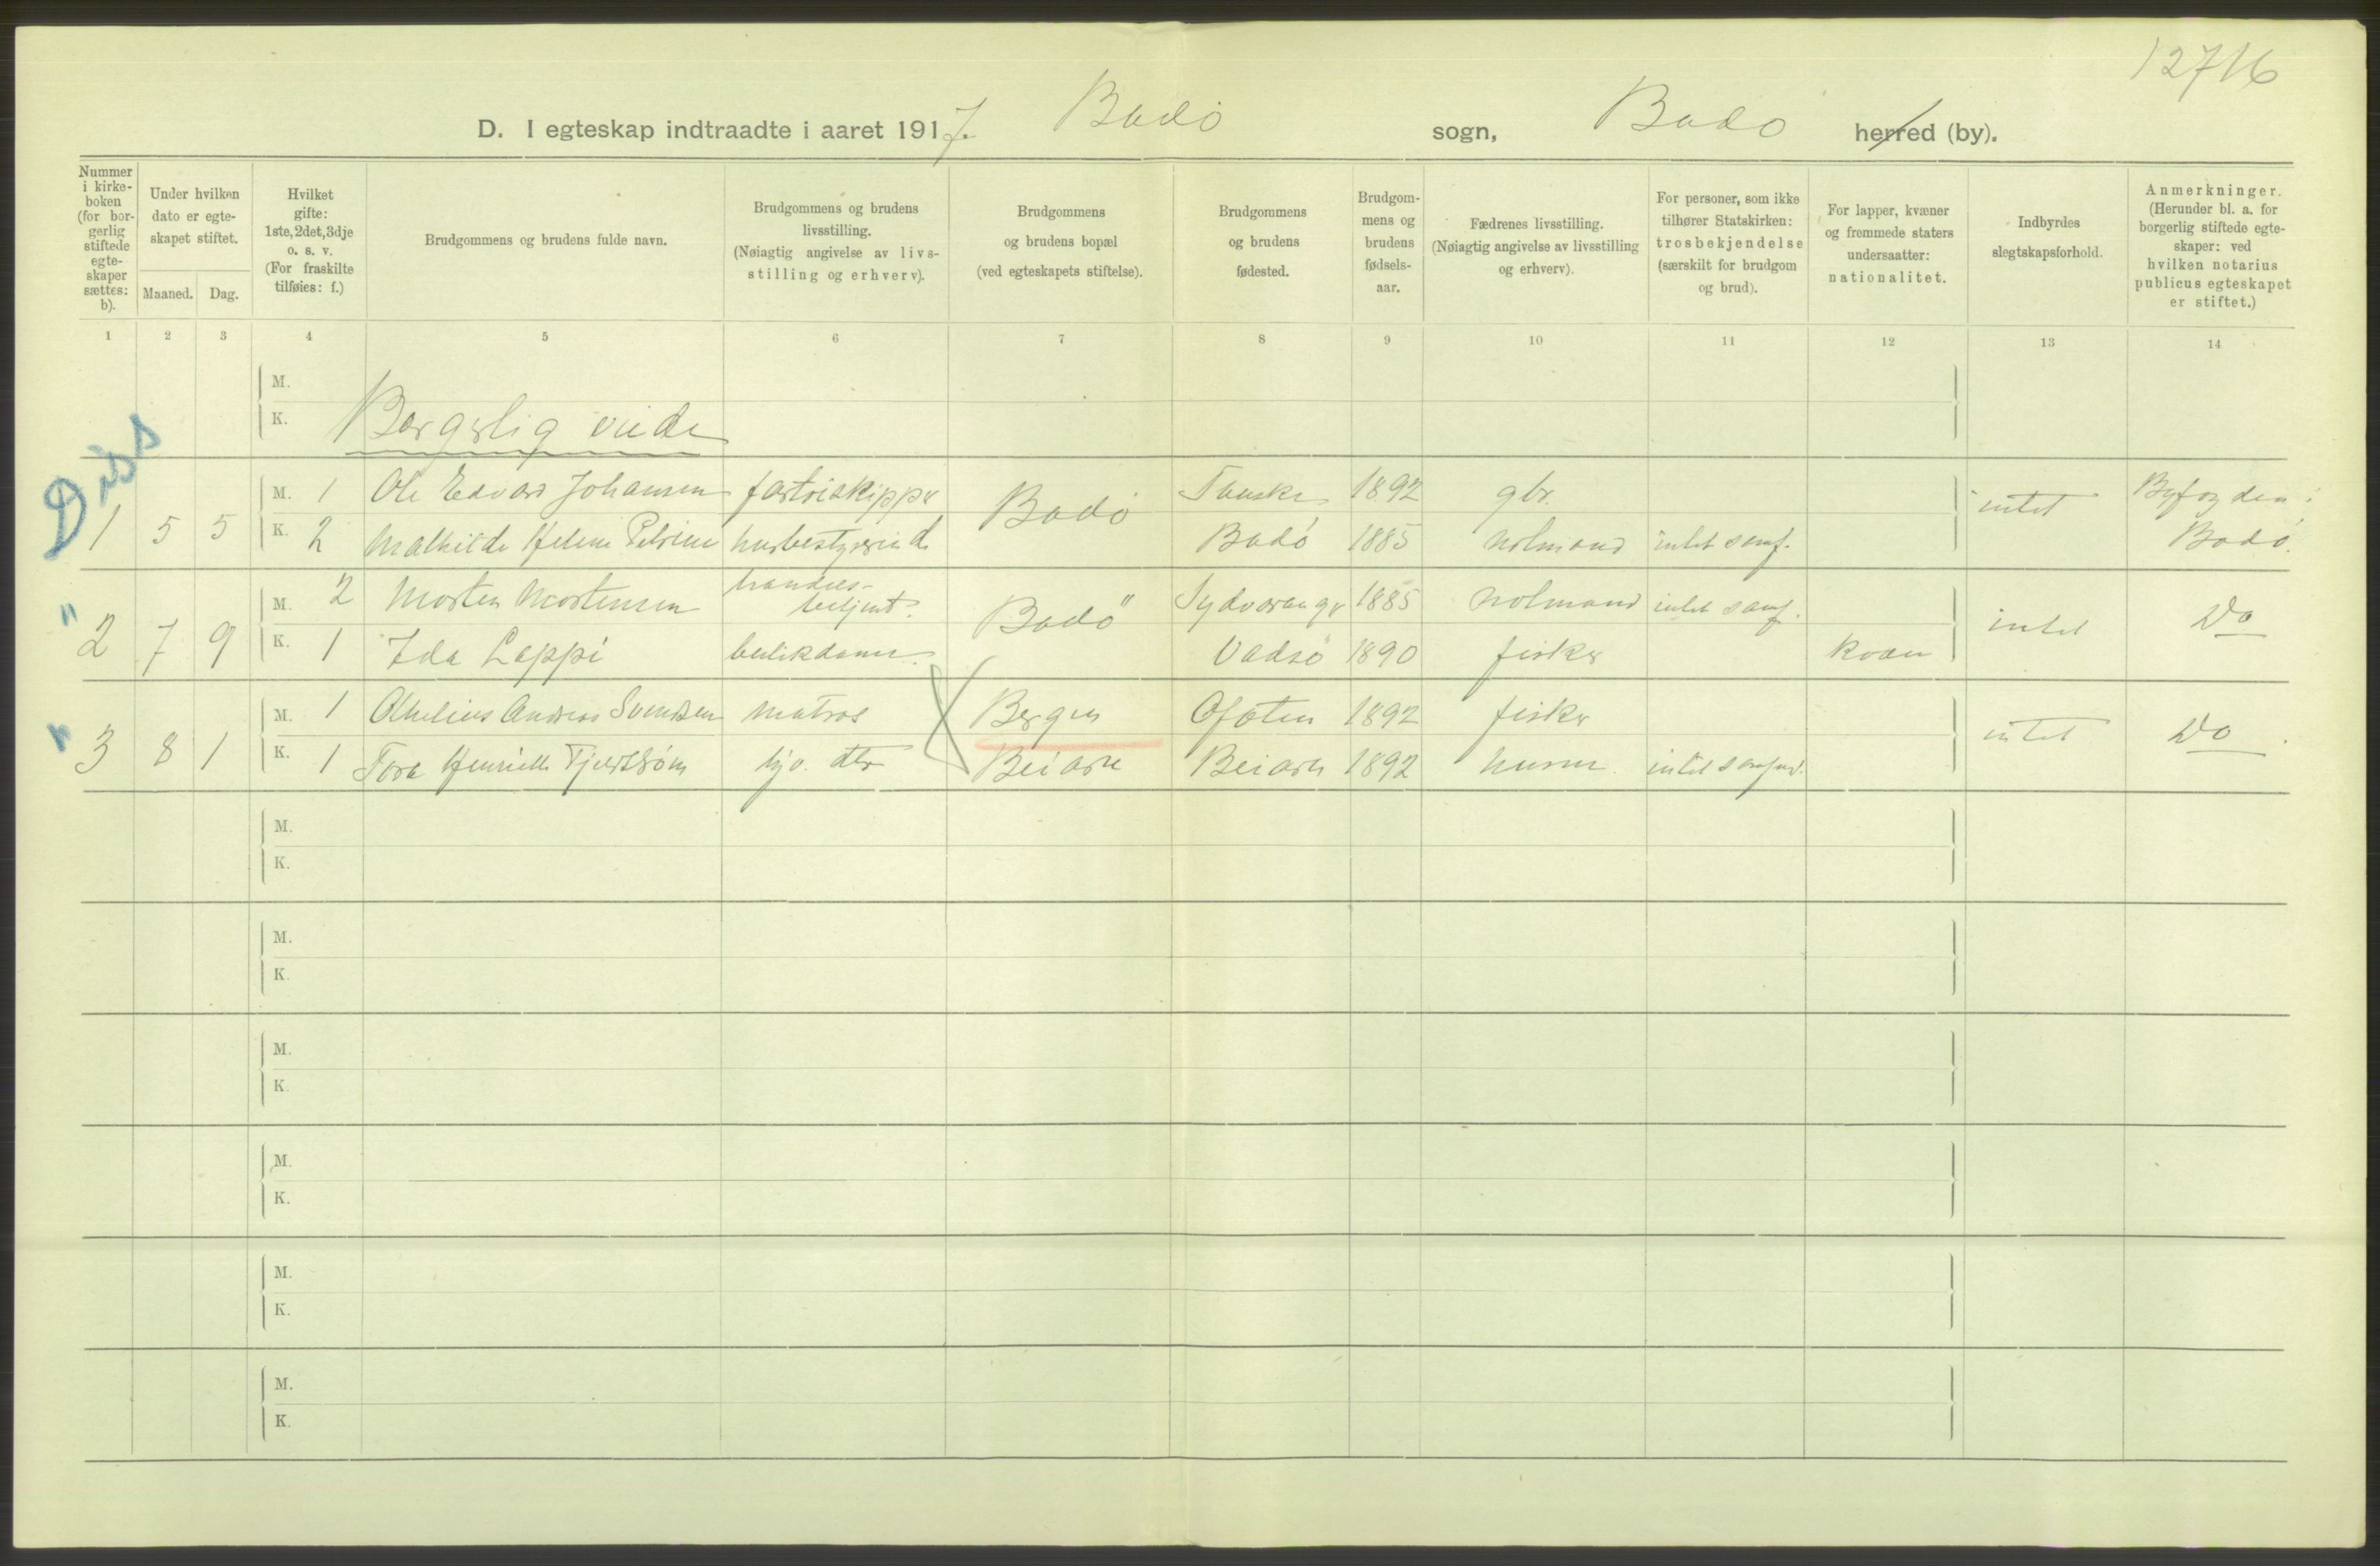 12716
D. I egteskap indtraadte i aaret 1917. Bodö sogn, Bodö herred (by).
Nummer i kirke-boken (for bor-gerlig stiftede egte-skaper sættes: b).
Under hvilken dato er egte-skapet stiftet.
Maaned. Dag.
Hvilket gifte: 1ste, 2det, 3dje o. s. v. (For fraskilte tilføies: f.)
Brudgommens og brudens fulde navn.
Brudgommens og brudens livsstilling. (Nøiagtig angivelse av livs-stilling og erhverv).
Brudgommens og brudens bopæl (ved egteskapets stiftelse).
Brudgommens og brudens fødested.
Brudgom-mens og brudens fødsels-aar.
Fædrenes livsstilling. (Nøiagtig angivelse av livsstilling og erhverv).
For personer, som ikke tilhører Statskirken: trosbekjendelse (særskilt for brudgom og brud).
For lapper, kvæner og fremmede staters undersaatter: nationalitet.
Indbyrdes slegtskapsforhold.
Anmerkninger. (Herunder bl. a. for borgerlig stiftede egte-skaper: ved hvilken notarius publicus egteskapet er stiftet.)
1 2 3 4 5 6 7 8 9 10 11 12 13 14
M.
K. Borgerlig viede
Diss
M. 1 Ole Edvard Johansen Bodö 1892 gbr. intet Byfogden i
1 5 5 K. 2 Mathilde Helene Petrine husbestyrerinde Bodö 1885 intet samf. Bodö.
" M. 2 Morten Mortensen handels-betjent. Bodö Sydvaranger 1885 intet samf. intet Do
2 7 9 K. 1 Ida Lappi butikdame. Vadsö 1890 fisker kvæn
" M. 1 Andreas Svendsen matros Bergen Ofoten 1892 fisker intet Do
3 8 1 K. 1 Tora Beiarn Beiarn 1892 intet samfund.
M.
K.
M.
K.
M.
K.
M.
K.
M.
K.
M.
K.